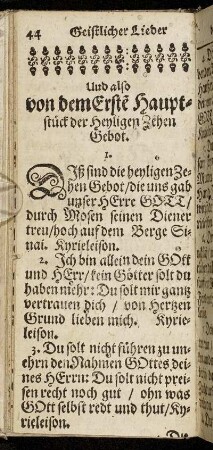 44 Geistlicher Lieder
Und also
von dem Erste Haupt-
stück der Heyligen Zehen
Gebot.
1.
DIß sind die heyligen Ze-
hen Gebot/die uns gab
unser HErre GOTT/
durch Mosen seinen Diener
treu/hoch auf dem Berge Si-
nai. Kyrieleison.
2. Ich bin allein dein GOtt
und HErr/kein Götter solt du
haben mehr: Du solt mir gantz
vertrauen dich / von Hertzen
Grund lieben mich. Kyrie-
leison.
3. Du solt nicht führen zu un-
ehrn den Nahmen GOttes dei-
nes HErrn: Du solt nicht prei-
sen recht noch gut / ohn was
GOtt selbst redt und thut/Ky-
rieleison.